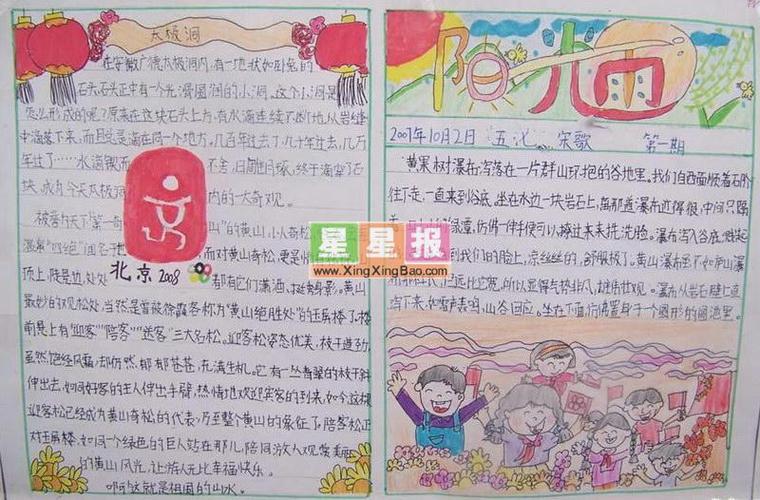 太极洞
在安徽广德太极洞内,有一块状如卧兔的
石头,石头正中有一个光滑圆润的小洞。这个小洞是
怎么形成的呢?原来在这块石头上方,有水滴连续不断地从岩缝
中滴落下来,而且总是滴在同一个地方。几百年过去了,几千年过去了,几万
年过去了……水滴锲而不舍,日雕月琢,终于滴穿了石
块,成为今天太极洞内的一大奇观。
北京2008
顶上,陡崖边,处处都有它们潇洒、挺秀的身影。黄山
最妙的观松处,当然是曾被徐霞客称为“黄山绝胜处”的玉屏楼了。楼
前悬上有“迎客”“陪客”“送客”三大名松。迎客松姿态优美,枝干遒劲,
虽然饱经风霜,却仍然郁郁苍苍,充满生机。它有一丛青翠的枝干斜
伸出去,如同好客的主人伸出手臂,热情地欢迎宾客的到来。如今这棵
迎客松已经成为黄山奇松的代表,乃至整个黄山的象征了。陪客松正
对玉屏楼,如同一个绿色的巨人站在那儿,陪同游人观赏美丽
的黄山风光,让游人无比幸福快乐。
啊!这就是祖国的山水。
阳光雨
2007年10月2日 五 宋歌 第一期
黄果树瀑布,泻落在一片群山环抱的谷地里。我们自西面顺着石阶
往下走,一直来到谷底,坐在水边一块岩石上,离那道瀑布近得很,中间只隔
仿佛一伸手便可以擦过来来洗洗脸。瀑布泻入谷底,溅起
到我们的脸上,凉丝丝的,舒服极了。黄山瀑布
所以显得气势非凡,雄伟壮观。瀑布从岩石壁上直
泻下来,如雷声轰鸣,山谷回应。坐在下面,仿佛置身于一个圆形的
星星报
www.XingXingBao.com